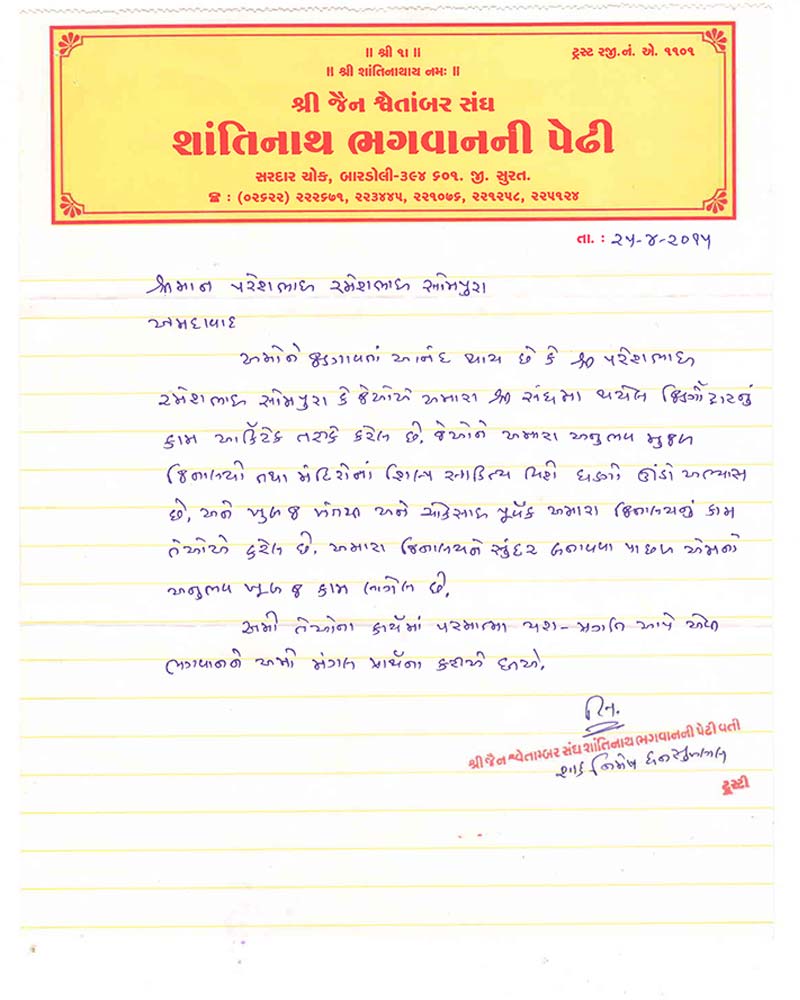 ॥ શ્રી ૧। ॥
ટ્રસ્ટ રજી.નં. એ. ૧૧૦૧
॥ શ્રી શાંતિનાથાય નમઃ ॥
શ્રી જૈન શ્વેતાંબર સંઘ
શાંતિનાથ ભગવાનની પેઢી
સરદાર ચોક, બારડોલી-૩૯૪ ૬૦૧. જી. સુરત.
☎ : (૦૨૬૨૨) ૨૨૨૬૭૧, ૨૨૩૪૪૫, ૨૨૧૦૭૬, ૨૨૧૨૫૮, ૨૨૫૧૨૪
તા. : ૨૫-૪-૨૦૧૫
શ્રીમાન પરેશભાઇ રમેશભાઇ સોમપુરા
અમદાવાદ
અમોને જણાવતાં આનંદ થાય છે કે શ્રી પરેશભાઇ
રમેશભાઇ સોમપુરા કે જેઓએ અમારા શ્રી સંઘમા થયેલ જિર્ણોદ્ધારનું
કામ આર્કિટેક તરીકે કરેલ છે. જેઓને અમારા અનુભવ મુજબ
જિનાલયો તથા મંદિરોનાં શિલ્પ સ્થાપિત્ય વિશે ઘણો ઊંડો અભ્યાસ
છે, અને ખુબ જ ખંતથી અને ચોકસાઇ પૂર્વક અમારા જિનાલયનું કામ
તેઓએ કરેલ છે. અમારા જિનાલયને સુંદર બનાવવા પાછળ એમનો
અનુભવ ખૂબ જ કામ લાગેલ છે.
અમો તેઓના કાર્યમાં પરમાત્મા યશ-પ્રગતિ આપે એવી
ભગવાનને અમો મંગલ પ્રાર્થના કરીએ છીએ.
લિ.
શ્રી જૈન શ્વેતામ્બર સંઘ શાંતિનાથ ભગવાનની પેઢી વતી
શાહ નિમેષ ધનસુખલાલ
ટ્રસ્ટી